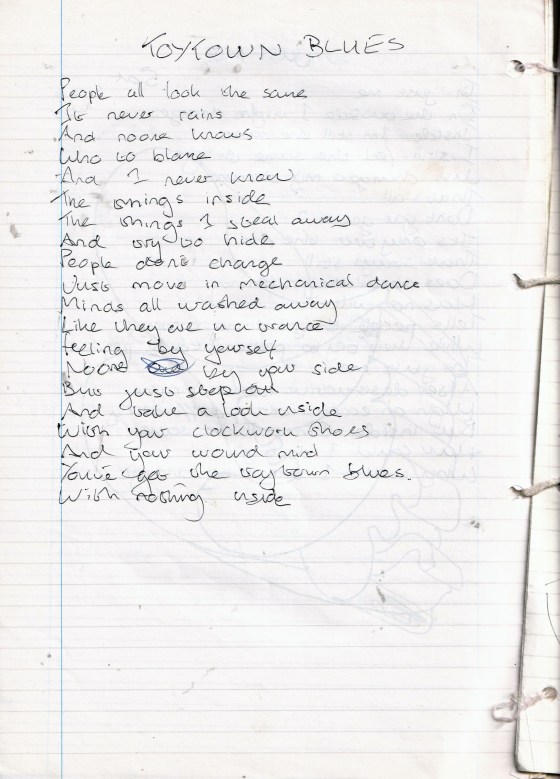 TOYTOWN BLUES
People all look the same
It never rains
And noone knows
Who to blame
And I never know
The things inside
The things I steal away
And try to hide
People dont change
Just move in mechanical dance
Minds all washed away
Like they are in a trance
Feeling by yourself
Noone by your side
But just step out
And take a look inside
With your clockwork shoes
And your wound mind
You've got the toytown blues.
With nothing inside